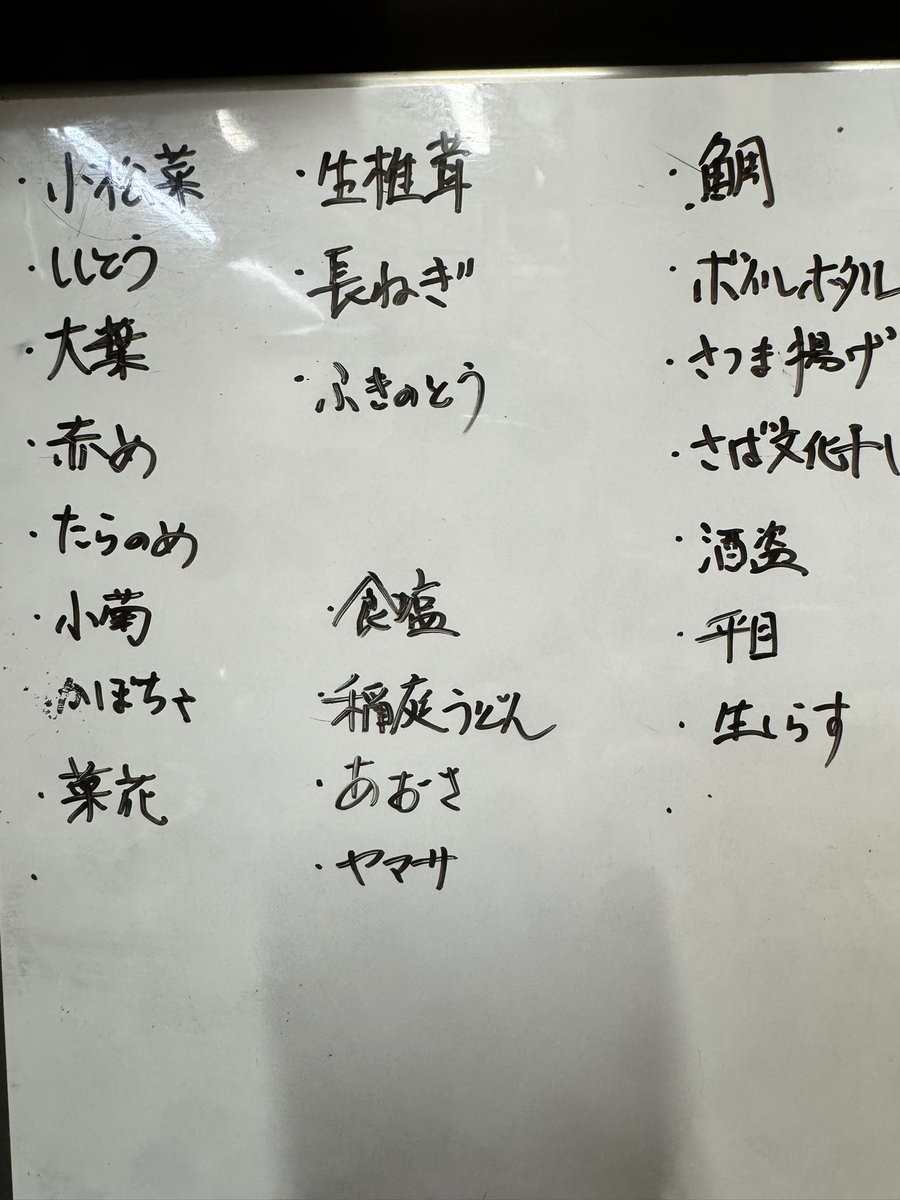 ・小松菜
・ししとう
・大葉
・赤め
・たらのめ
・小菊
かぼちゃ
・菜花
・
・生椎茸
・長ねぎ
・ふきのとう
・食塩
・稲庭うどん
・あおさ
・ヤマサ
・鯛
・ボイルホタル
・さつま揚げ
・さば文化干し
・酒盗
・平目
・生しらす
・